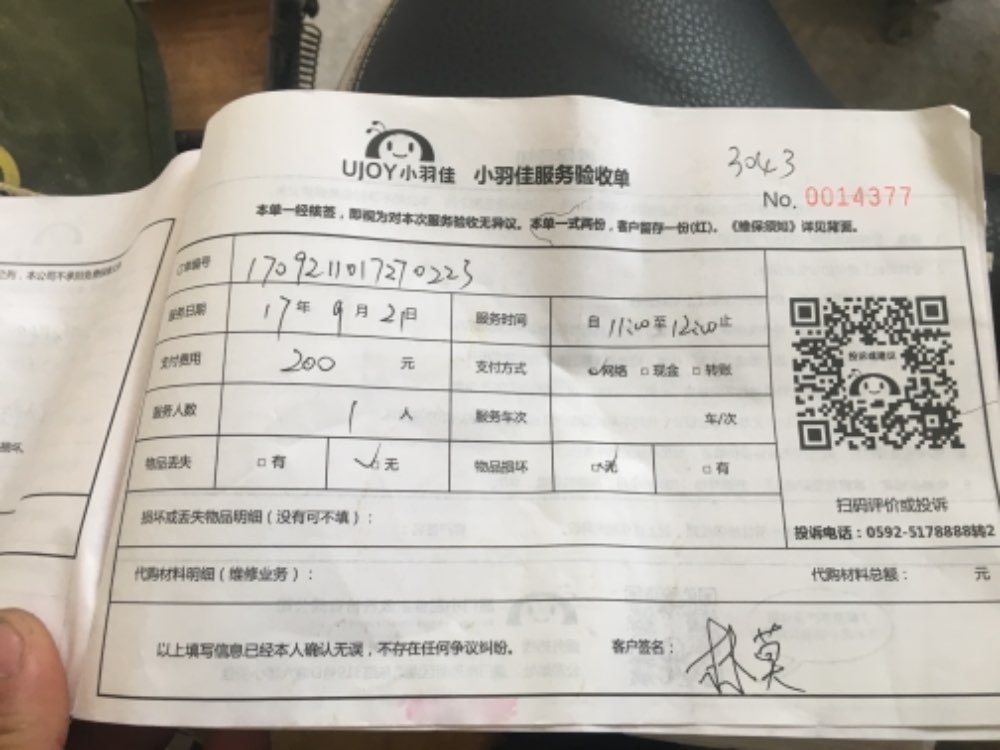 3043
UJOY小羽佳 小羽佳服务验收单
No. 0014377
本单一经核签，即视为对本次服务验收无异议。本单一式两份，客户留存一份(红)。《维保须知》详见背面。
订单编号 1709211017270223
服务日期 17年 9月 21日 服务时间 自 11:00 至 12:00 止
支付费用 200 元 支付方式 ☑网络 □现金 □转账
服务人数 1 人 服务车次 车/次
物品丢失 □有 ☑无 物品损坏 ☑无 □有
投诉或建议
扫码评价或投诉
损坏或丢失物品明细（没有可不填）：
投诉电话：0592-5178888转2
代购材料明细（维修业务）： 代购材料总额： 元
以上填写信息已经本人确认无误，不存在任何争议纠纷。 客户签名：林莫